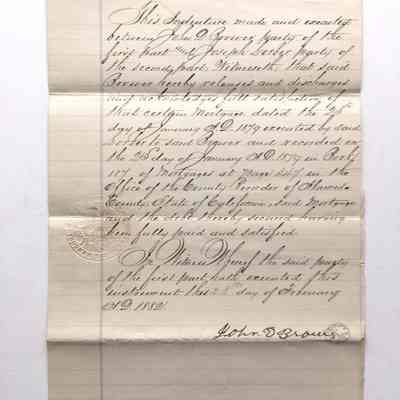 This Indenture made and executed
between John D. Brower party of the
first part and Joseph party of
the second part, Witnesseth, that said
Brower hereby releases and discharges
and acknowledges full satisfaction of
that certain Mortgage, dated the
day of January A.D. 1879 executed by said
to said Brower and recorded on
the day of January A.D. 1879 in Book
107 of Mortgages at Page 247 in the
office of the County Recorder of Alameda
County, State of California, said Mortgage
and the debt thereby secured having
been fully paid and satisfied.
In Witness Whereof the said party
of the first part, hath executed this
instrument this day of February
A.D. 1882
John D Brower